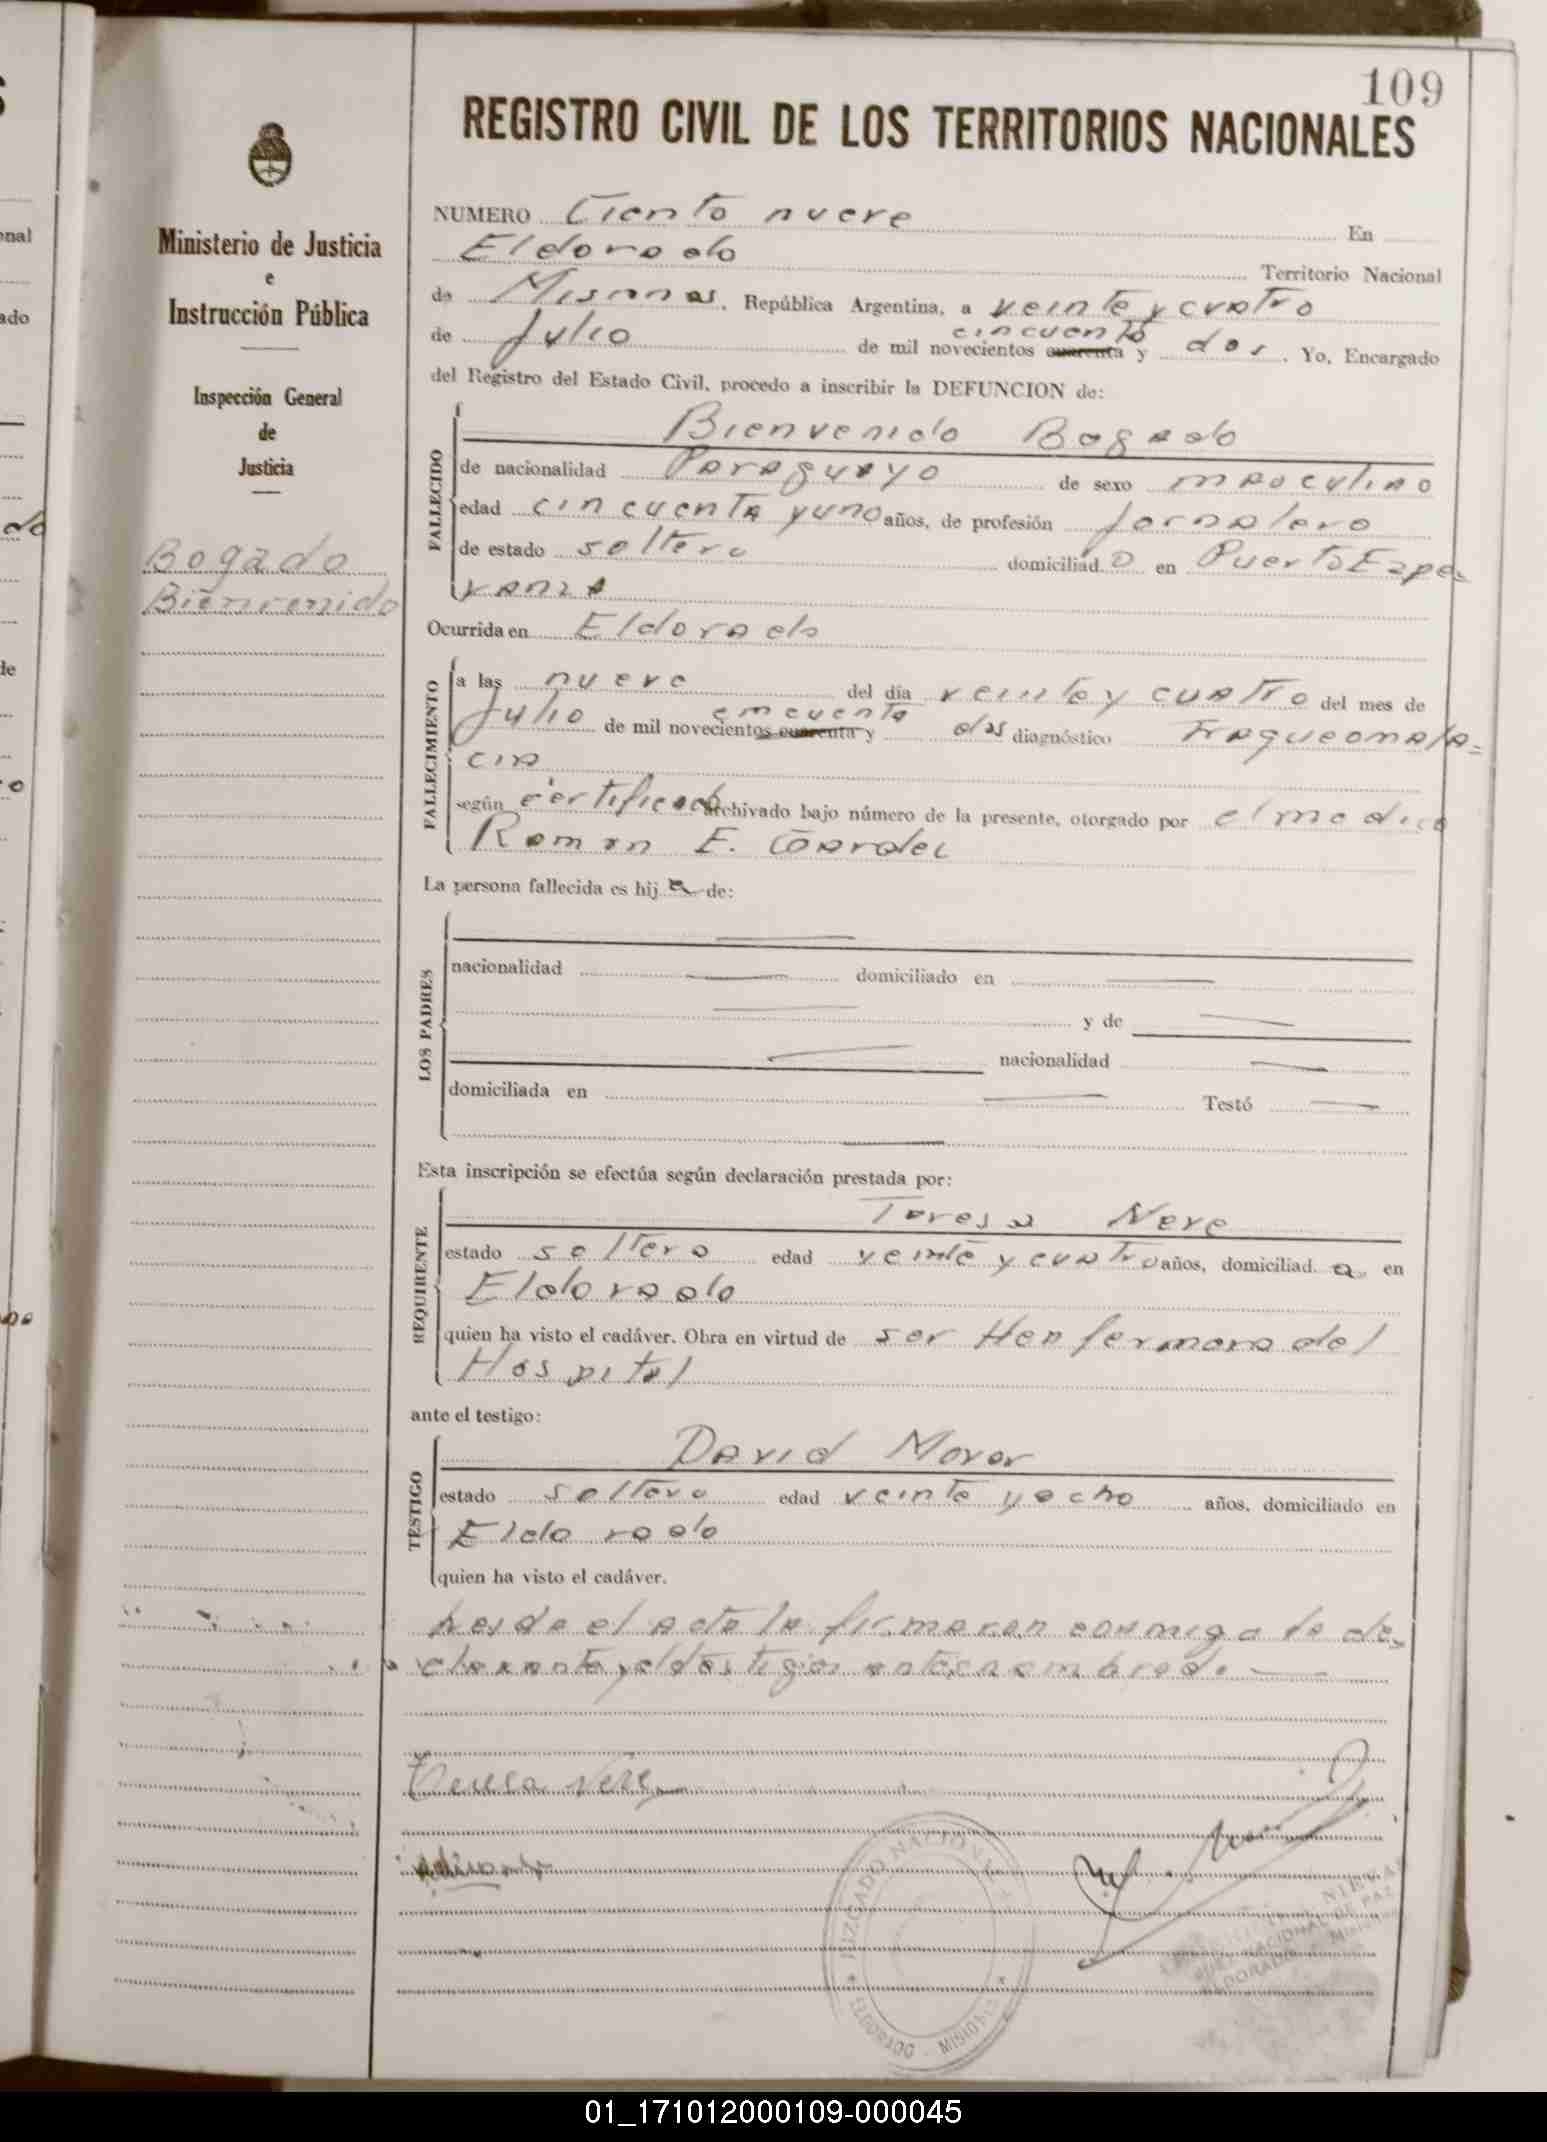 109
REGISTRO CIVIL DE LOS TERRITORIOS NACIONALES
Ministerio de Justicia
e
Instrucción Pública
Inspección General
de
Justicia
Bogado
Bienvenido
NUMERO Ciento nueve En
Eldorado Territorio Nacional
de Misiones, República Argentina, a veinte y cuatro
de Julio de mil novecientos cuarenta cincuenta y dos. Yo, Encargado
del Registro del Estado Civil, procedo a inscribir la DEFUNCION de:
FALLECIDO
Bienvenido Bogado
de nacionalidad Paraguayo de sexo masculino
edad cincuenta y uno años, de profesión Jornalero
de estado soltero domiciliado en Puerto Espe-
ranza
Ocurrida en Eldorado
FALLECIMIENTO
a las nueve del día veinte y cuatro del mes de
Julio de mil novecientos cuarenta cincuenta y dos diagnóstico Traqueomala=
cia
según certificado archivado bajo número de la presente, otorgado por el medico
Roman E.
La persona fallecida es hij de:
LOS PADRES
nacionalidad domiciliado en
y de
nacionalidad
domiciliada en Testó
Esta inscripción se efectúa según declaración prestada por:
REQUIRENTE
Teresa Nere
estado soltera edad veinte y cuatro años, domiciliada en
Eldorado
quien ha visto el cadáver. Obra en virtud de ser Henfermera del
Hospital
ante el testigo:
TESTIGO
David Morer
estado soltero edad veinte y ocho años, domiciliado en
Eldorado
quien ha visto el cadáver.
el acta la firmaran conmigo la de-
clarante y el testigos antes nombrado.
Teresa Nere
JUZGADO NACIONAL
ELDORADO - MISIONES
NIEVAS
JUEZ NACIONAL DE PAZ
ELDORADO - Misiones
01_171012000109-000045